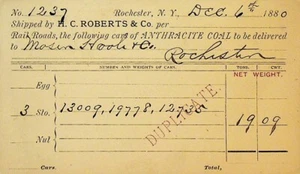 No. 1237 Rochester, N. Y., Dec. 6th 1880
Shipped by H. C. ROBERTS & Co. per
Rail Roads, the following cars of ANTHRACITE COAL to be delivered
to Moser Hoole & Co.
Rochester
CARS. NUMBER AND WEIGHTS OF CARS. TONS. CWT.
NET WEIGHT.
Egg
3 Sto. 13009, 19778, 19 09
Nut
DUPLICATE.
Cars. Total,